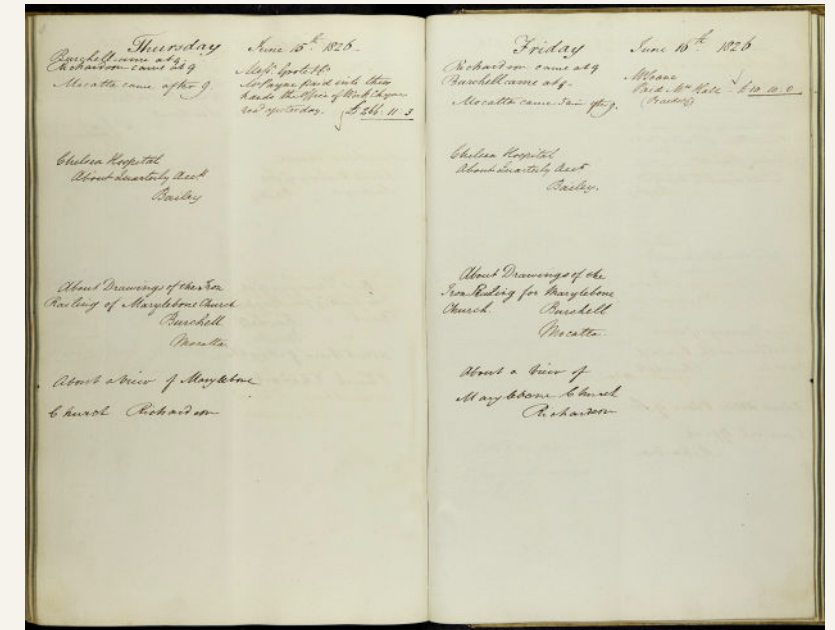 Thursday June 15th 1826
Burchell came at 9
Richardson came at 9
Mocatta came after 9
Messrs. Grote &c
Mr Payne paid into their
hands the Office of Work Chynne
yesterday. £ 266 : 11 : 3
Chelsea Hospital
About Quarterly Acct
Bailey
About Drawings of the Iron
Railing of Marylebone Church
Burchell
Mocatta
About a View of Marylebone
Church Richardson
Friday June 16th 1826
Richardson came at 9
Burchell came at 9
Mocatta came after 9
Paid Mr Hall £ 10 : 10 : 0
Chelsea Hospital
About Quarterly Acct
Bailey.
About Drawings of the
Iron Railing for Marylebone
Church. Burchell
Mocatta.
About a View of
Marylebone Church
Richardson